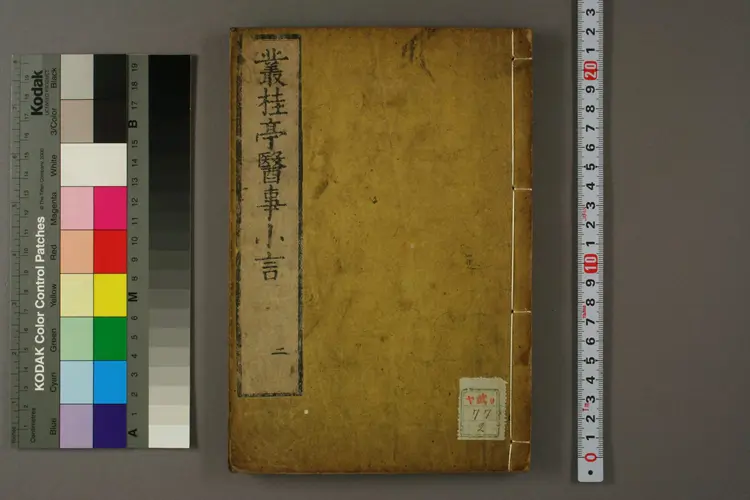 叢桂亭醫事小言
二
Kodak
KODAK Color Control Patches
Black
3/Color
White
Magenta
Red
Yellow
Green
Cyan
Blue
Centimetres
19
18
17
B
15
14
13
12
11
10
9
M
6
5
4
3
2
1
A
3
2
1
20
9
8
7
6
5
4
3
2
1
10
9
8
7
6
5
4
3
2
1
0
772
2